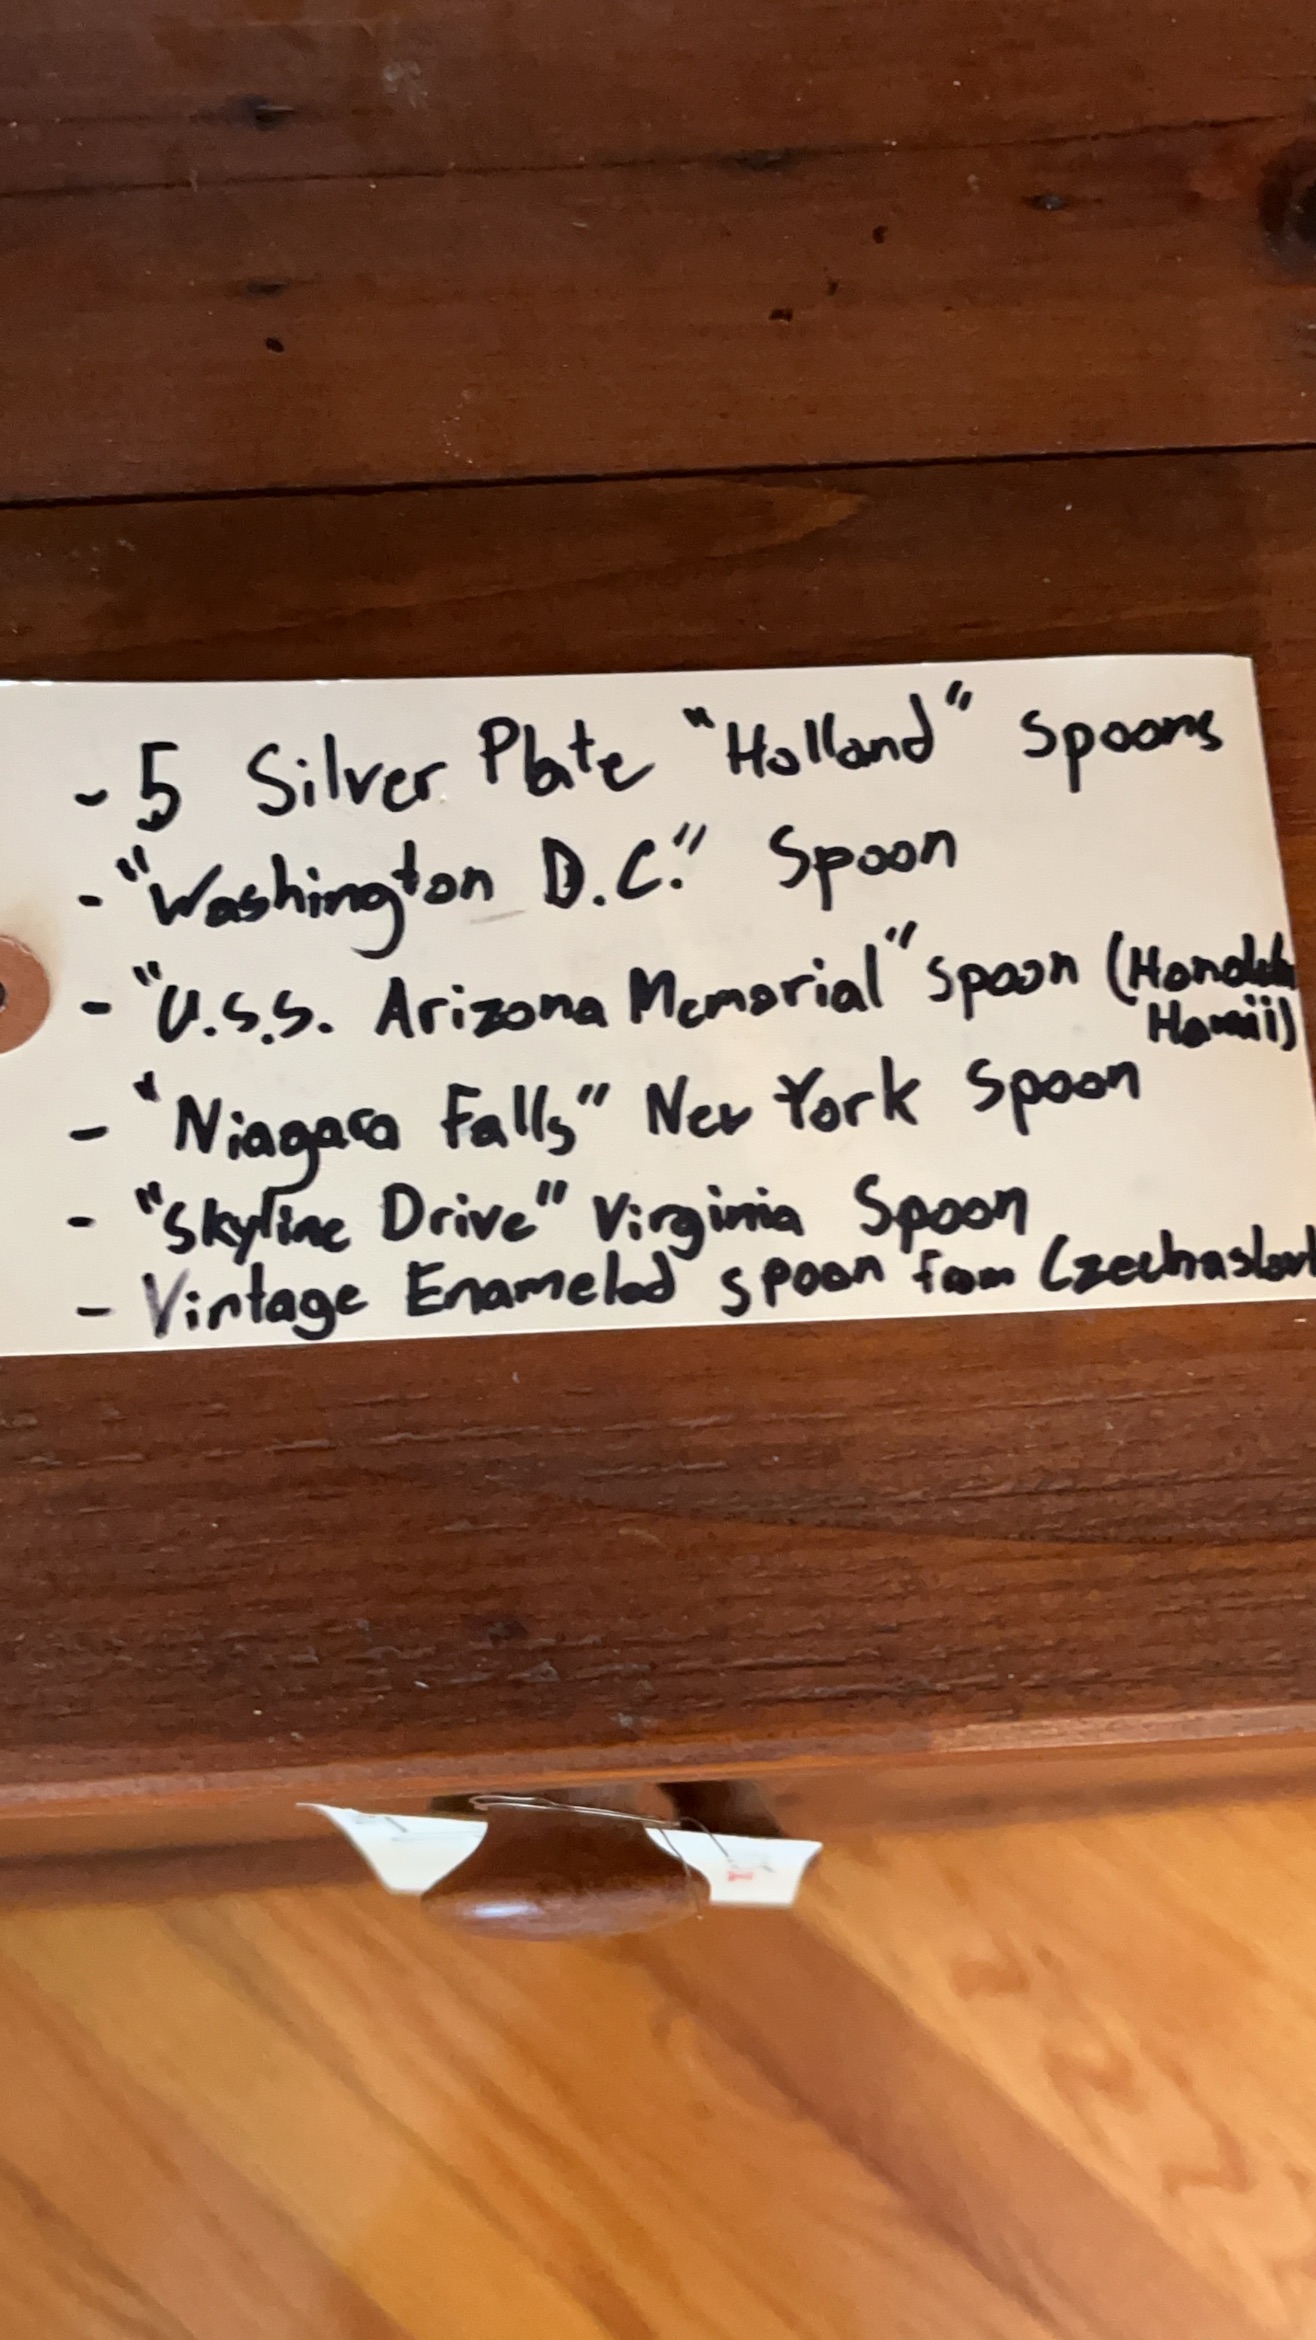 - 5 Silver Plate "Holland" Spoons
- "Washington D.C." Spoon
- "U.S.S. Arizona Memorial" Spoon (Honolulu
Hawaii)
- "Niagara Falls" New York Spoon
- "Skyline Drive" Virginia Spoon
- Vintage Enameled spoon from